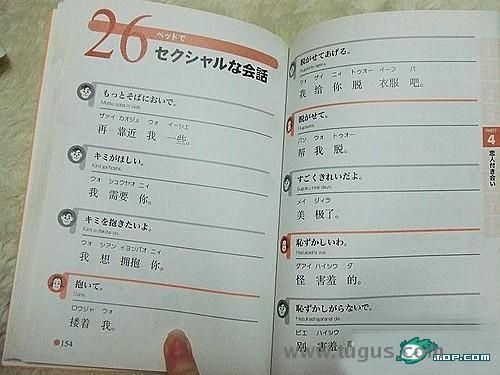 26
ベッドで
セクシャルな会話
もっとそばにおいで。
Motto soba ni oide.
ザァイ カオジュ ウォ イーシエ
再 靠近 我 一些。
キミがほしい。
Kimi ga hoshii.
ウォ シュウヤオ ニィ
我 需要 你。
キミを抱きたいよ。
Kimi o dakitai yo.
ウォ シアン イョンバオ ニィ
我 想 拥抱 你。
抱いて。
Daite.
ロウジャ ウォ
搂着 我。
154
脱がせてあげる。
Nugasete ageru.
ウォ ゲイ ニィ トゥオー イーフ バ
我 给 你 脱 衣服 吧。
脱がせて。
Nugasete.
バン ウォ トゥオー
帮 我 脱。
すごくきれいだよ。
Sugoku kirei dayo.
メイ ジィラ
美 极了。
恥ずかしいわ。
Hazukashii wa.
グアイ ハイシウ ダ
怪 害羞 的。
恥ずかしがらないで。
Hazukashigaranai de.
ビエ ハイシウ
别 害羞
PART
4
恋人付き合い
www.tugus.com
TOP.com